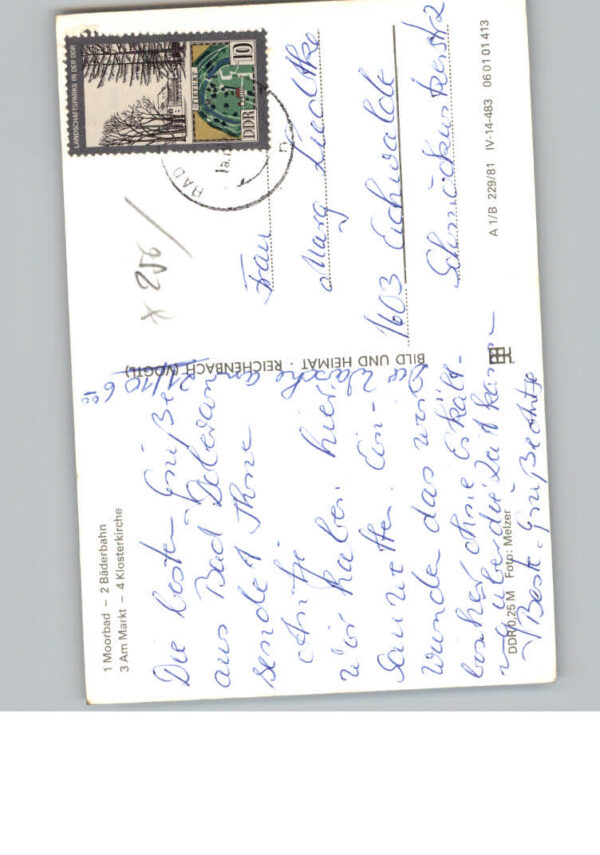 1 Moorbad – 2 Bäderbahn
3 Am Markt – 4 Klosterkirche
Die besten Grüße
aus Bad Doberan
sendet Ihne
Antje.
Wir haben hier
Sauwetter. Ein
Wunder das wir
bisher ohne Erkält-
über die Zeit kam
Best. Grüße Antje
die Wäsche am 21/10 6
DDR 0,25 M Foto: Melzer
BILD UND HEIMAT · REICHENBACH (VOGTL)
LANDSCHAFTSPARKS IN DER DDR
DDR 10
BAD
x 256/
Frau
Marg Liedtke
1603 Eichwalde
A 1/B 229/81 IV-14-483 06 01 01 413